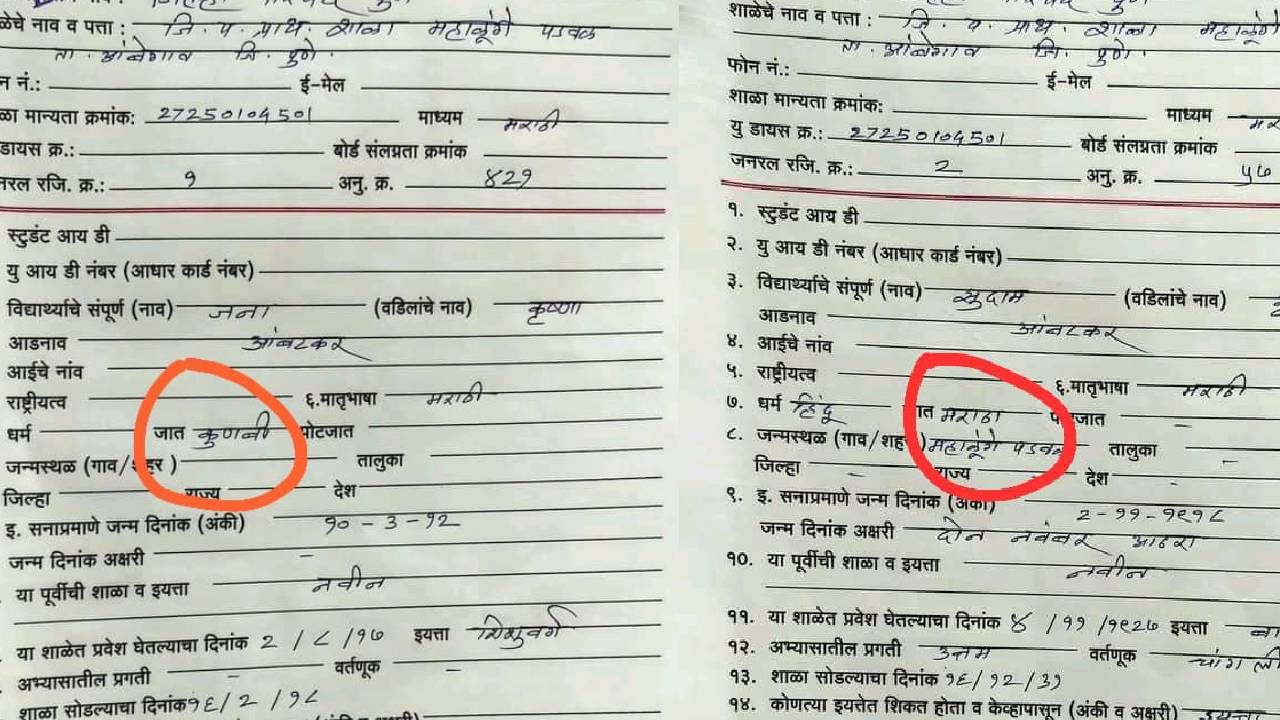 ळेचे नाव व पत्ता : जि. प. प्राथ. शाळा महाळूंगे पडवळ
ता. आंबेगाव जि. पुणे.
न नं.: ई-मेल
ळा मान्यता क्रमांक: 27250104501 माध्यम मराठी
डायस क्र.: बोर्ड संलग्नता क्रमांक
नरल रजि. क्र.: १ अनु. क्र. ४२१
स्टुडंट आय डी
यु आय डी नंबर (आधार कार्ड नंबर)
विद्यार्थ्याचे संपूर्ण (नाव) जना (वडिलांचे नाव) कृष्णा
आडनाव आंबटकर
आईचे नांव
राष्ट्रीयत्व ६.मातृभाषा मराठी
धर्म जात कुणबी पोटजात
जन्मस्थळ (गाव/शहर) तालुका
जिल्हा राज्य देश
इ. सनाप्रमाणे जन्म दिनांक (अंकी) १० - ३ - १२
जन्म दिनांक अक्षरी -
या पूर्वीची शाळा व इयत्ता नवीन
या शाळेत प्रवेश घेतल्याचा दिनांक २ / ८ / १७ इयत्ता शिशुवर्ग
अभ्यासातील प्रगती - वर्तणूक -
शाळा सोडल्याचा दिनांक १६ / २ / १८
शाळेचे नाव व पत्ता : जि. प. प्राथ. शाळा महाळूंगे
ता. आंबेगाव जि. पुणे.
फोन नं.: ई-मेल
शाळा मान्यता क्रमांक: माध्यम
यु डायस क्र.: 27250104501 बोर्ड संलग्नता क्रमांक
जनरल रजि. क्र.: २ अनु. क्र. ५७
१. स्टुडंट आय डी
२. यु आय डी नंबर (आधार कार्ड नंबर)
३. विद्यार्थ्याचे संपूर्ण (नाव) सुदाम (वडिलांचे नाव)
आडनाव आंबटकर
४. आईचे नांव
५. राष्ट्रीयत्व ६.मातृभाषा मराठी
७. धर्म हिंदू जात मराठा पोटजात -
८. जन्मस्थळ (गाव/शहर) महाळूंगे पडवळ तालुका -
जिल्हा - राज्य देश -
९. इ. सनाप्रमाणे जन्म दिनांक (अंकी) २-११-१९१८
जन्म दिनांक अक्षरी दोन नवंबर अठरा
१०. या पूर्वीची शाळा व इयत्ता नवीन
११. या शाळेत प्रवेश घेतल्याचा दिनांक ४ / ११ / १९२७ इयत्ता
१२. अभ्यासातील प्रगती उत्तम वर्तणूक चांगली
१३. शाळा सोडल्याचा दिनांक १६ / १२ / ३१
१४. कोणत्या इयत्तेत शिकत होता व केव्हापासून (अंकी व अक्षरी)